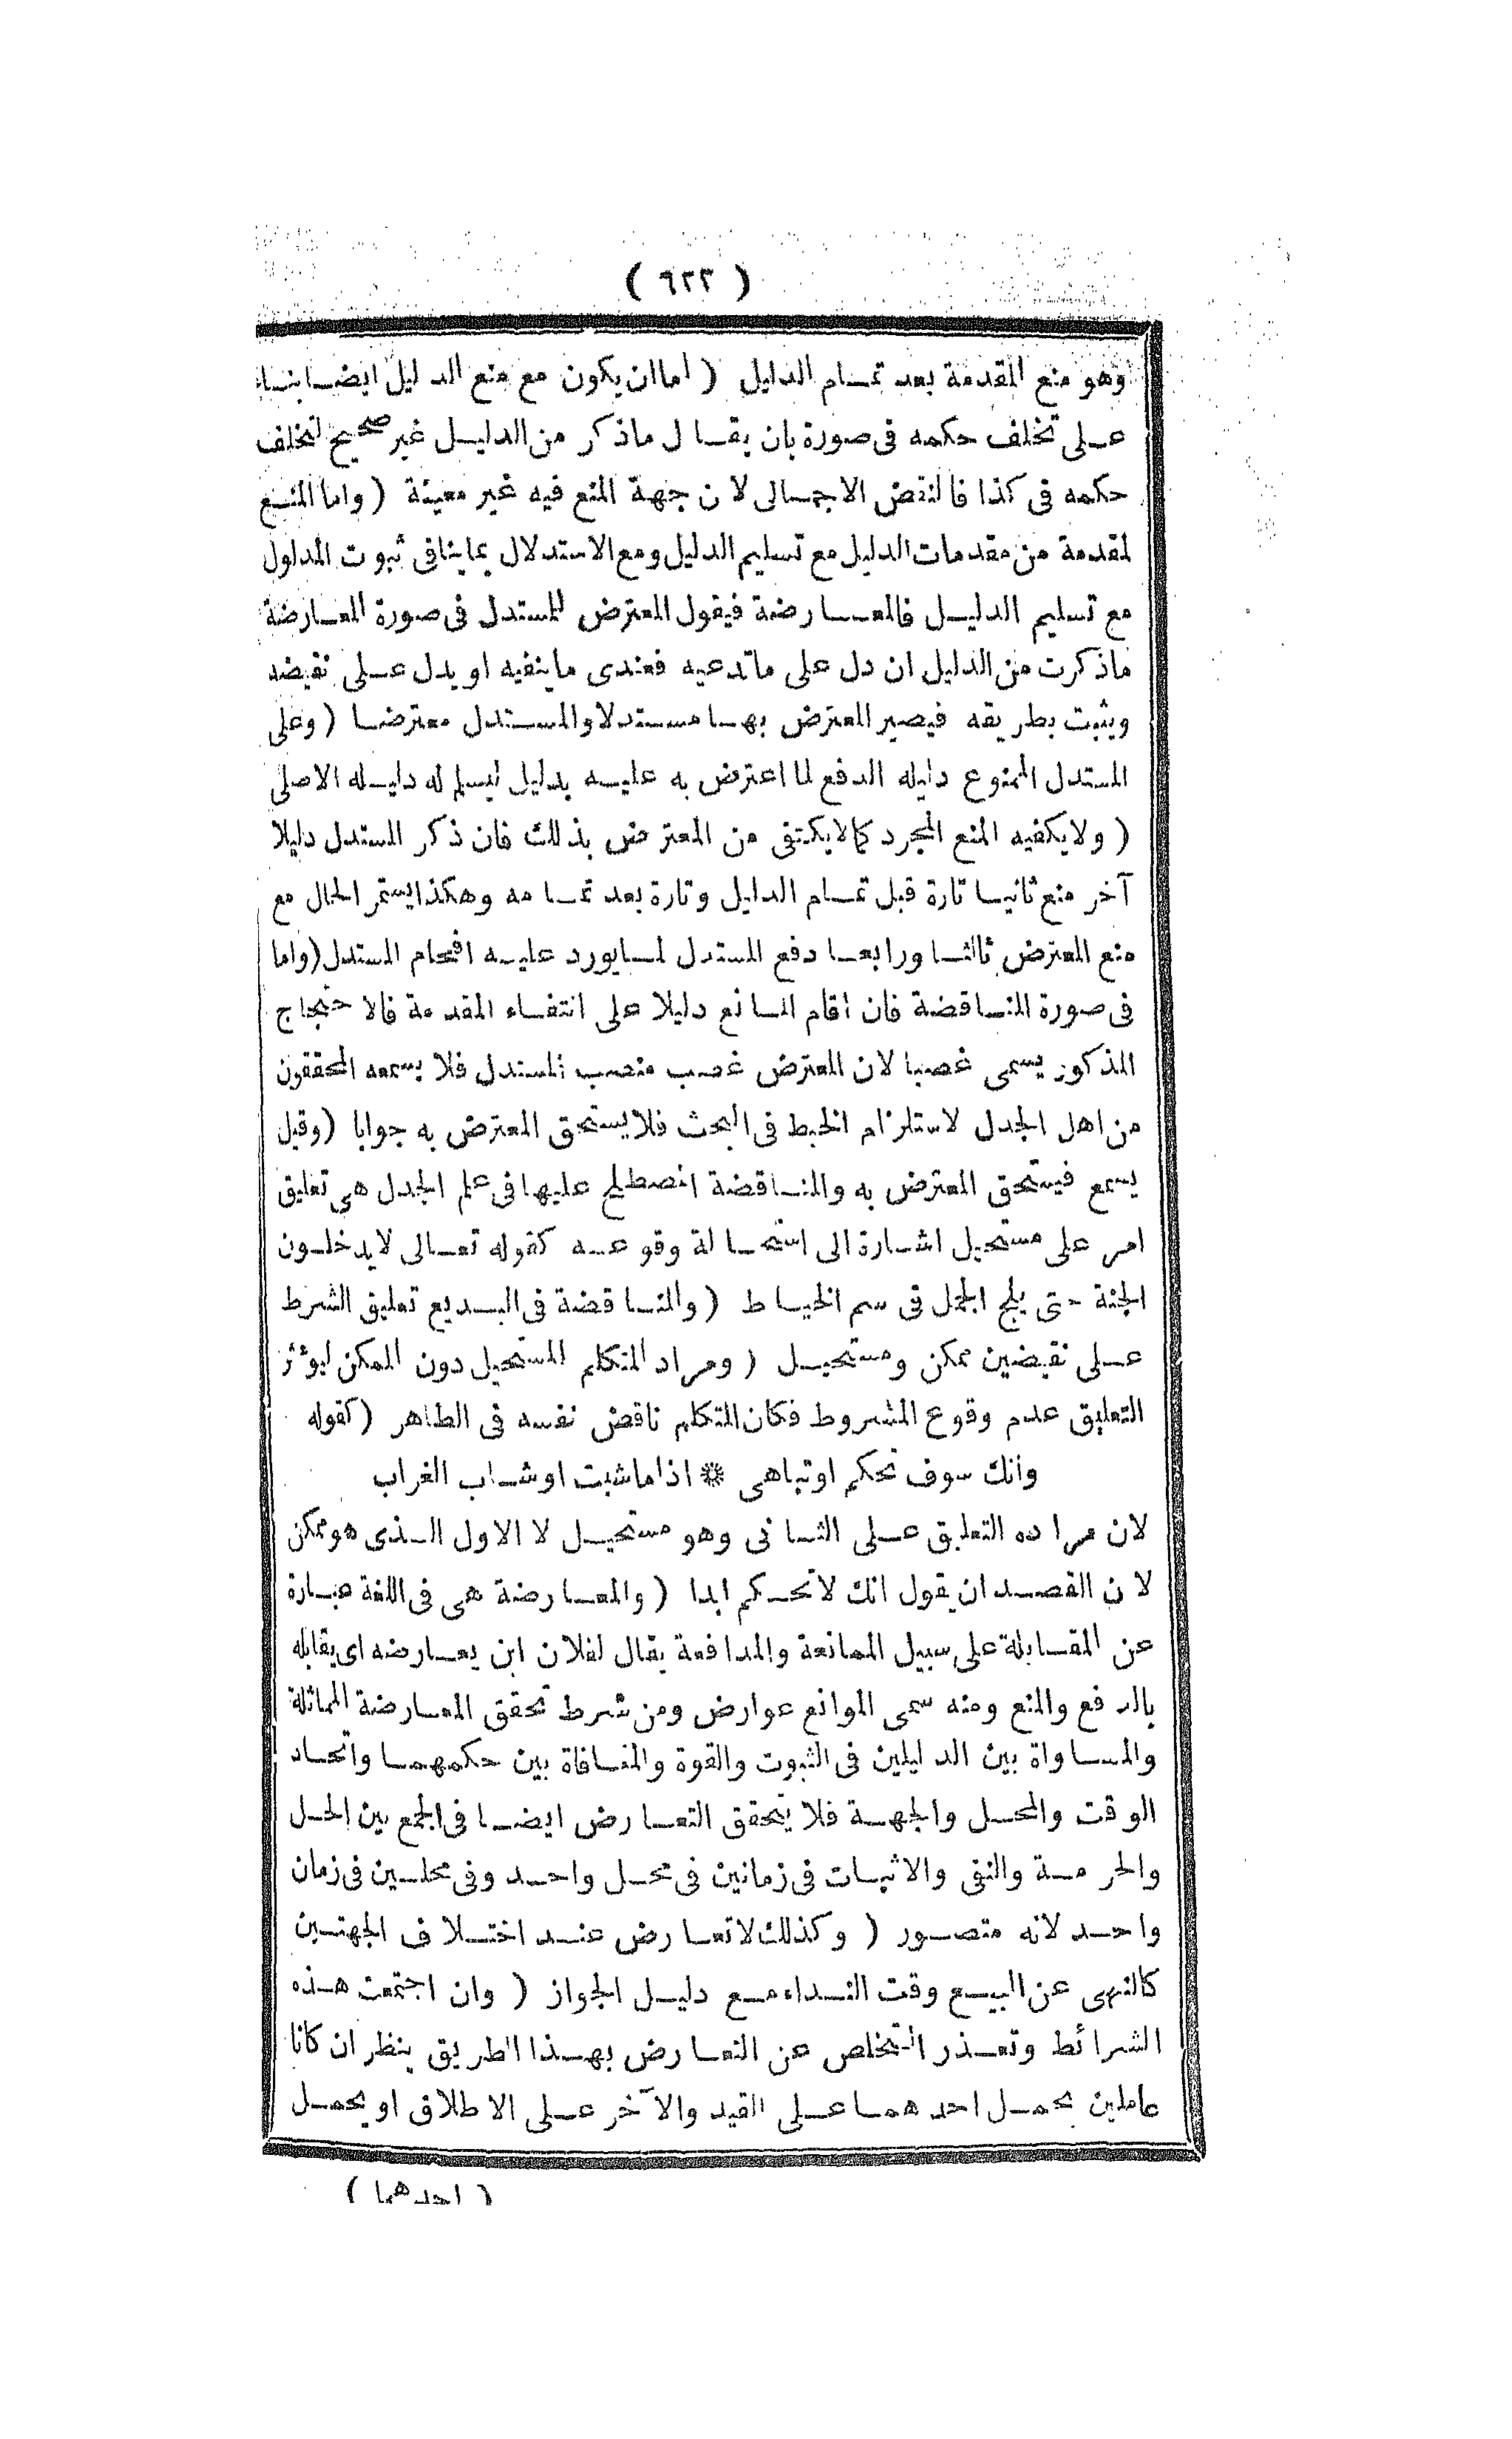 ( ٦٢٢ )
وهو منع المقدمة بعد تمام الدليل ( اما ان يكون مع منع الدليل ايضا بناء
على تخلف حكمه فى صورة بان يقال ماذكر من الدليل غير صحيح لتخلف
حكمه فى كذا فالنقض الاجمالى لان جهة المنع فيه غير معينة ( واما المنع
لمقدمة من مقدمات الدليل مع تسليم الدليل ومع الاستدلال بماينافى ثبوت المدلول
مع تسليم الدليل فالمعارضة فيقول المعترض للمستدل فى صورة المعارضة
ماذكرت من الدليل ان دل على ماتدعيه فعندى ماينفيه او يدل على نقيضه
ويثبت بطريقه فيصير المعترض بها مستدلا والمستدل معترضا ( وعلى
المستدل الممنوع دليله الدفع لما اعترض به عليه بدليل ليسلم له دليله الاصلى
( ولايكفيه المنع المجرد كمالايكتفى من المعترض بذلك فان ذكر المستدل دليلا
آخر منع ثانيا تارة قبل تمام الدليل وتارة بعد تمامه وهكذا يستمر الحال مع
منع المعترض ثالثا ورابعا دفع المستدل لمايورد عليه افحام المستدل ( واما
فى صورة المناقضة فان اقام المانع دليلا على انتفاء المقدمة فالاحتجاج
المذكور يسمى غصبا لان المعترض غصب منصب المستدل فلا يسمعه المحققون
من اهل الجدل لاستلزام الخبط فى البحث فلا يستحق المعترض به جوابا ( وقيل
يسمع فيستحق المعترض به والمناقضة المصطلح عليها فى علم الجدل هى تعليق
امر على مستحيل اشارة الى استحالة وقوعه كقوله تعالى لايدخلون
الجنة حتى يلج الجمل فى سم الخياط ( والمناقضة فى البديع تعليق الشرط
على نقيضين ممكن ومستحيل ( ومراد المتكلم المستحيل دون الممكن ليؤثر
التعليق عدم وقوع المشروط فكان المتكلم ناقض نفسه فى الظاهر ( كقوله
وانك سوف تحكم اوتباهى ۞ اذا ماشبت اوشاب الغراب
لان مراده التعليق على الثانى وهو مستحيل لا الاول الذى هو ممكن
لان القصد ان يقول انك لاتحكم ابدا ( والمعارضة هى فى اللغة عبارة
عن المقابلة على سبيل الممانعة والمدافعة يقال لفلان ابن يعارضه اى يقابله
بالدفع والمنع ومنه سمى الموانع عوارض ومن شرط تحقق المعارضة المماثلة
والمساواة بين الدليلين فى الثبوت والقوة والمنافاة بين حكمهما واتحاد
الوقت والمحل والجهة فلا يتحقق التعارض ايضا فى الجمع بين الحل
والحرمة والنفى والاثبات فى زمانين فى محل واحد وفى محلين فى زمان
واحد لانه متصور ( وكذلك لاتعارض عند اختلاف الجهتين
كالنهى عن البيع وقت النداء مع دليل الجواز ( وان اجتمعت هذه
الشرائط وتعذر التخلص عن التعارض بهذا الطريق ينظر ان كانا
عاملين يحمل احدهما على القيد والآخر على الاطلاق او يحمل
( احدهما )